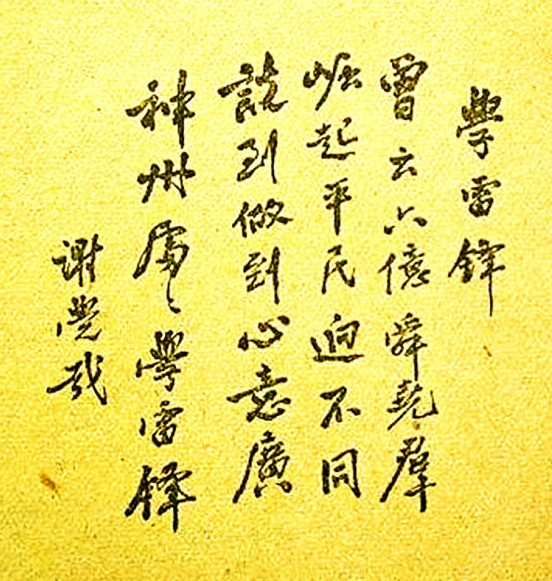 學雷鋒
曾云六億舜堯群
崛起平民迥不同
說到做到心意廣
神州處〻學雷鋒
謝覺哉